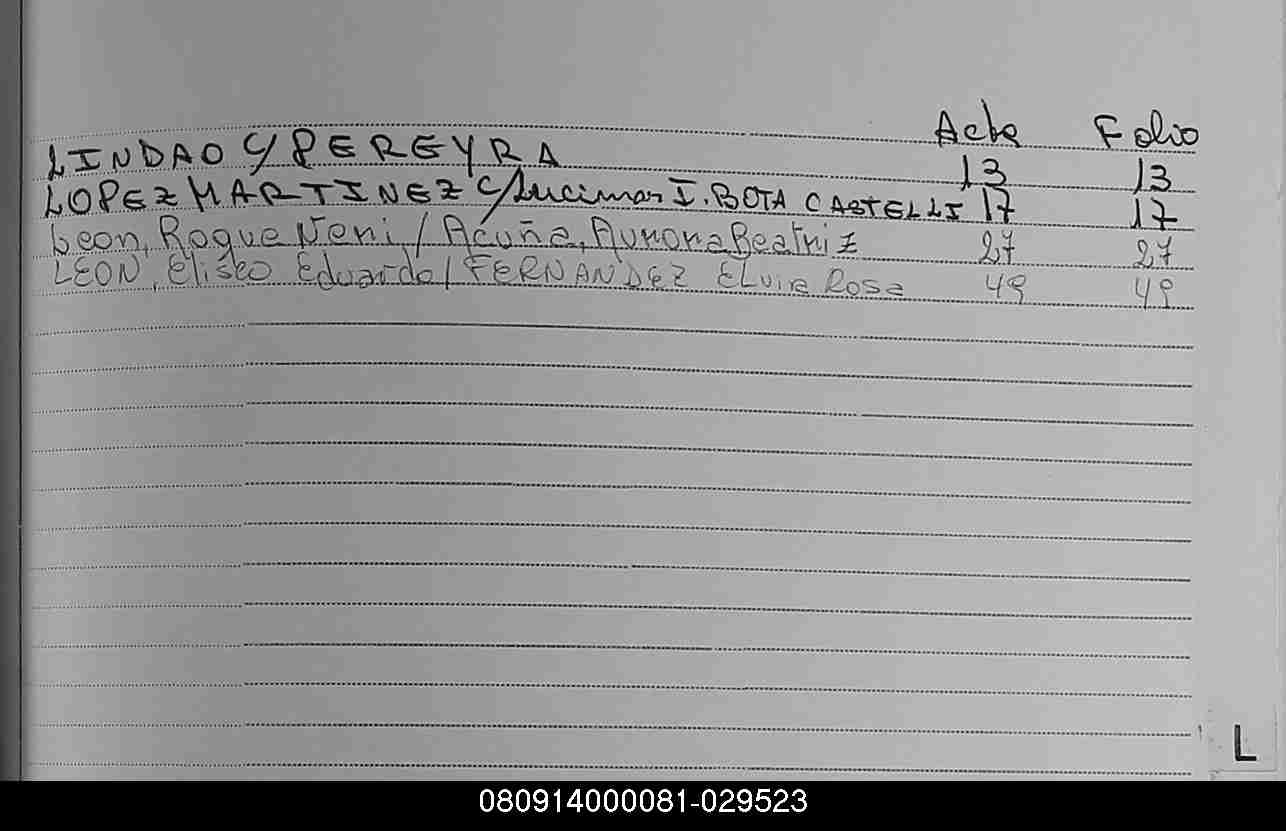 Acta Folio
LINDAO C/ PEREYRA 13 13
LOPEZ MARTINEZ C/ Lucimar I. BOTA CASTELLI 17 17
Leon, Roque Neri / Acuña, Aurora Beatriz 27 27
LEON, Eliseo Eduardo / FERNANDEZ ELvira Rosa 49 49
L
080914000081-029523